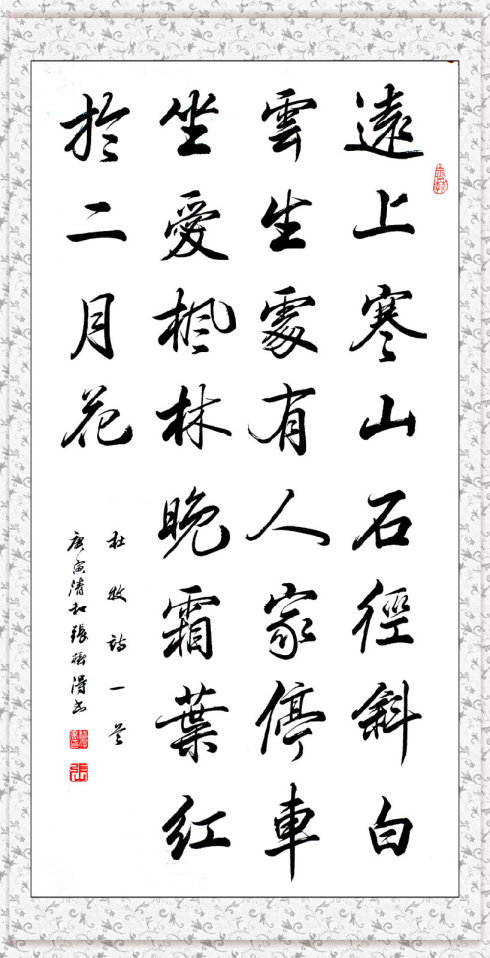 遠上寒山石徑斜白
雲生處有人家停車
坐愛楓林晚霜葉紅
於二月花
杜牧詩一首
庚寅清和張